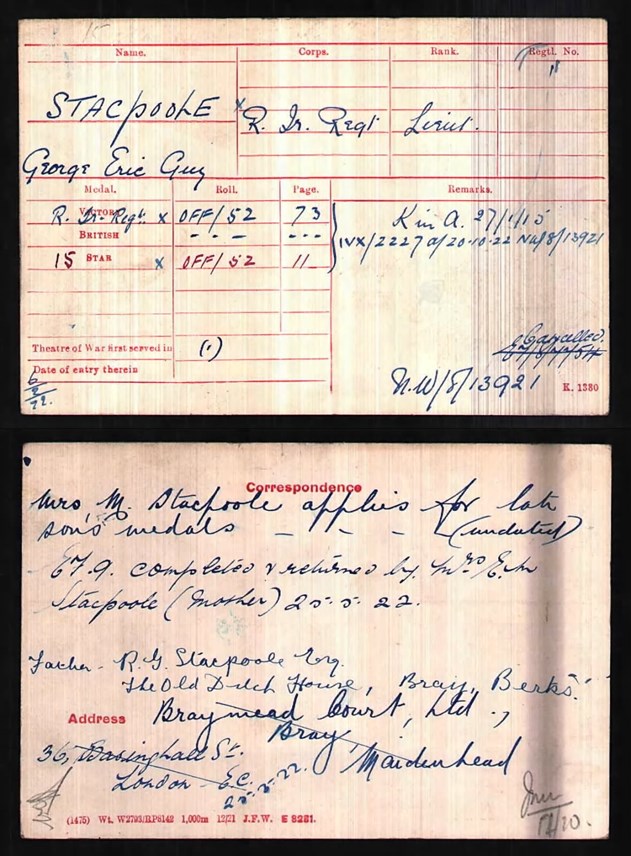 Name. Corps. Rank. Regtl. No.
STACpOOLE x R. Ir. Regt Lieut.
George Eric Guy
Medal. Roll. Page. Remarks.
VICTORY R. Ir. Regt. x OFF/52 73 K in A. 27/1/15
BRITISH - - - - - - IVX/2227 d/20.10.22 NW/8/13921
15 STAR x OFF/52 11
Theatre of War first served in (1) Cancelled.
Date of entry therein
6/9/22. N.W/8/13921 K. 1380
Correspondence
Mrs. M. Stacpoole applies for late
son's medals - - - (undated)
EF.9. completed & returned by Mrs E. M
Stacpoole (Mother) 25.5.22.
Father - R.G. Stacpoole Esq.
The Old Dutch House, Bray, Berks.
Address Braymead Court, Ltd.,
Bray
36, Basinghall St. Maidenhead
London E.C.
(1475) Wt. W2793/RP8142 1,000m 12/21 J.F.W. E 8281.